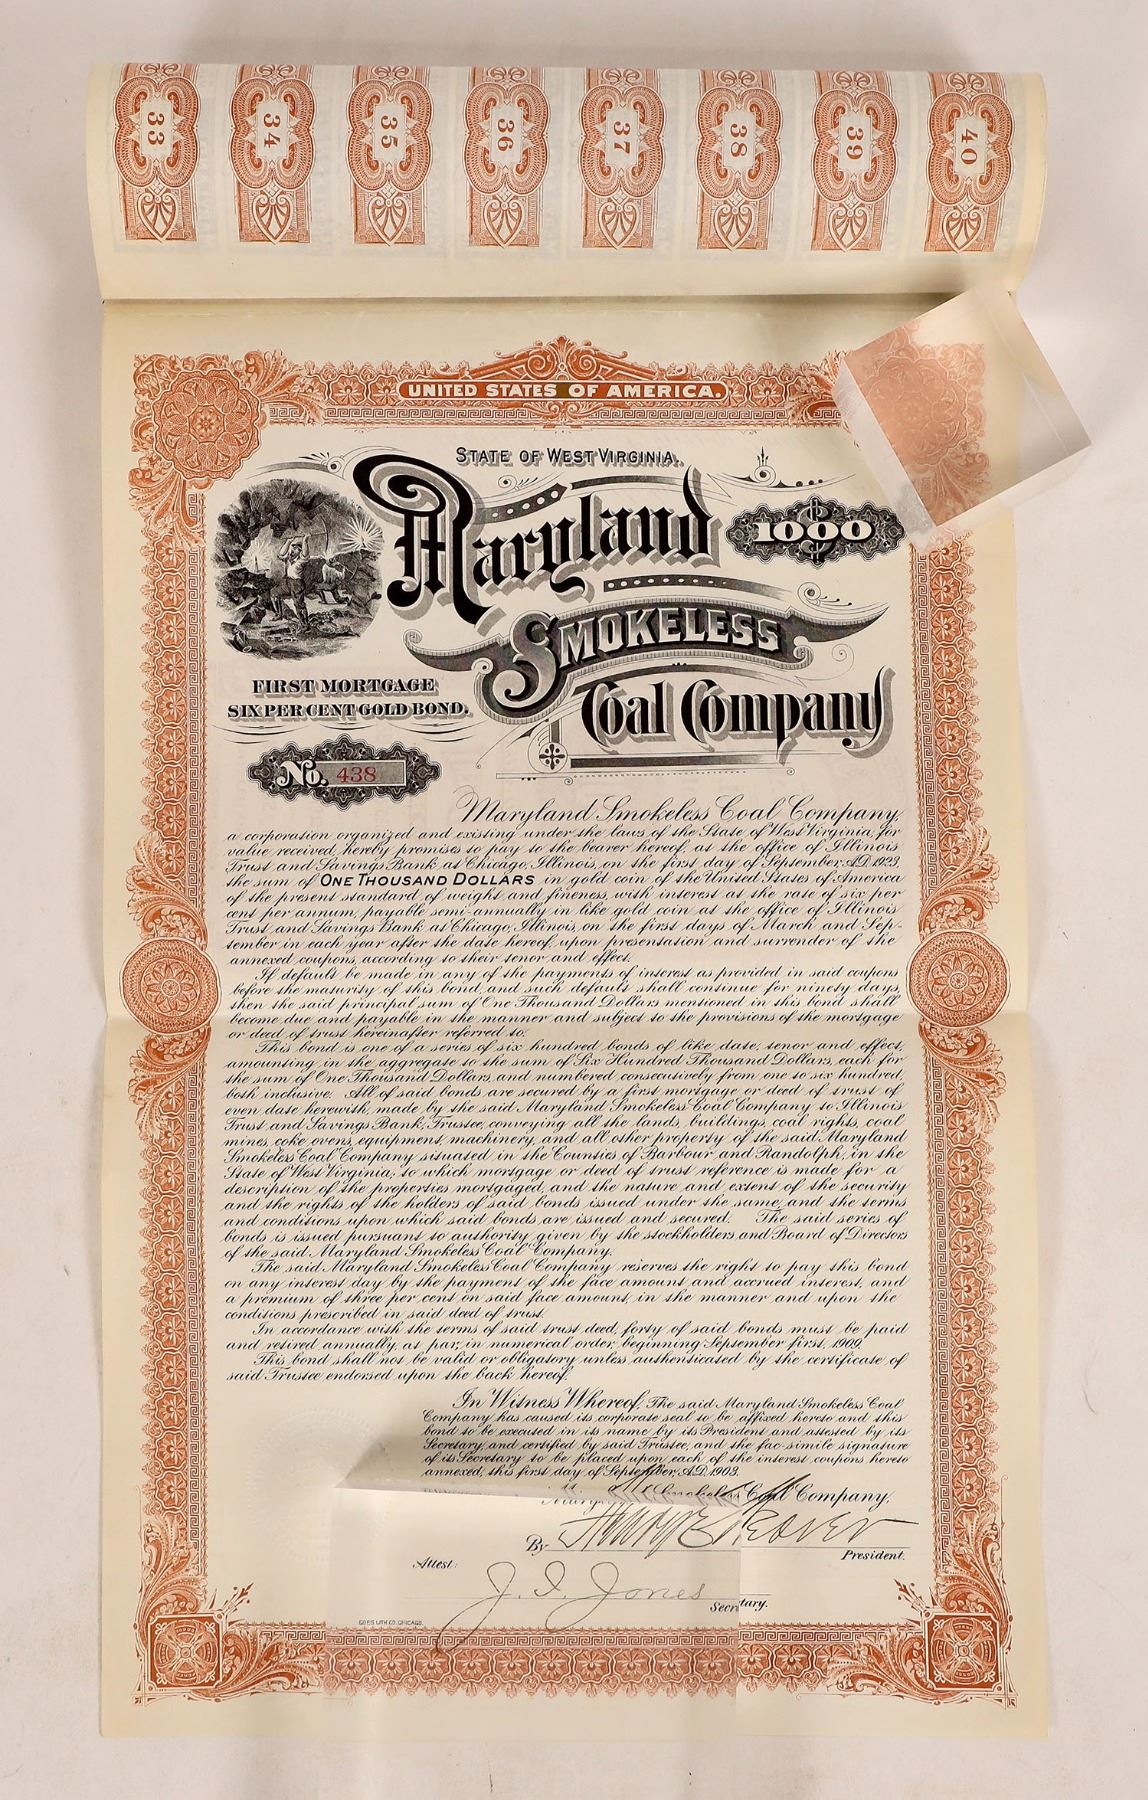 33 34 35 36 37 38 39 40
UNITED STATES OF AMERICA.
STATE OF WEST VIRGINIA.
Maryland
1000
SMOKELESS
Coal Company
FIRST MORTGAGE
SIX PER CENT GOLD BOND.
No. 438
Maryland Smokeless Coal Company,
a corporation organized and existing under the laws of the State of West Virginia, for
value received, hereby promises to pay to the bearer hereof, at the office of Illinois
Trust and Savings Bank at Chicago, Illinois, on the first day of September, A.D. 1923,
the sum of ONE THOUSAND DOLLARS in gold coin of the United States of America
of the present standard of weight and fineness, with interest at the rate of six per
cent per annum, payable semi-annually in like gold coin at the office of Illinois
Trust and Savings Bank at Chicago, Illinois, on the first days of March and Sep-
tember in each year after the date hereof, upon presentation and surrender of the
annexed coupons, according to their tenor and effect.
If default be made in any of the payments of interest as provided in said coupons
before the maturity of this bond, and such default shall continue for ninety days,
then the said principal sum of One Thousand Dollars mentioned in this bond shall
become due and payable in the manner and subject to the provisions of the mortgage
or deed of trust hereinafter referred to.
This bond is one of a series of six hundred bonds of like date, tenor and effect,
amounting in the aggregate to the sum of Six Hundred Thousand Dollars, each for
the sum of One Thousand Dollars, and numbered consecutively from one to six hundred,
both inclusive. All of said bonds are secured by a first mortgage or deed of trust of
even date herewith, made by the said Maryland Smokeless Coal Company to Illinois
Trust and Savings Bank, Trustee, conveying all the lands, buildings, coal rights, coal
mines, coke ovens, equipment, machinery, and all other property of the said Maryland
Smokeless Coal Company situated in the Counties of Barbour and Randolph, in the
State of West Virginia, to which mortgage or deed of trust reference is made for a
description of the properties mortgaged, and the nature and extent of the security
and the rights of the holders of said bonds issued under the same, and the terms
and conditions upon which said bonds are issued and secured. The said series of
bonds is issued pursuant to authority given by the stockholders and Board of Directors
of the said Maryland Smokeless Coal Company.
The said Maryland Smokeless Coal Company reserves the right to pay this bond
on any interest day by the payment of the face amount and accrued interest, and
a premium of three per cent on said face amount, in the manner and upon the
conditions prescribed in said deed of trust.
In accordance with the terms of said trust deed, forty of said bonds must be paid
and retired annually, at par, in numerical order, beginning September first, 1909.
This bond shall not be valid or obligatory unless authenticated by the certificate of
said Trustee endorsed upon the back hereof.
In Witness Whereof, The said Maryland Smokeless Coal
Company has caused its corporate seal to be affixed hereto and this
bond to be executed in its name by its President and attested by its
Secretary, and certified by said Trustee, and the fac-simile signature
of its Secretary to be placed upon each of the interest coupons hereto
annexed, this first day of September, A.D. 1903.
Smokeless Coal Company,
By Weaver
President.
Attest:
J. I. Jones
Secretary.
GOES LITH. CO. CHICAGO.